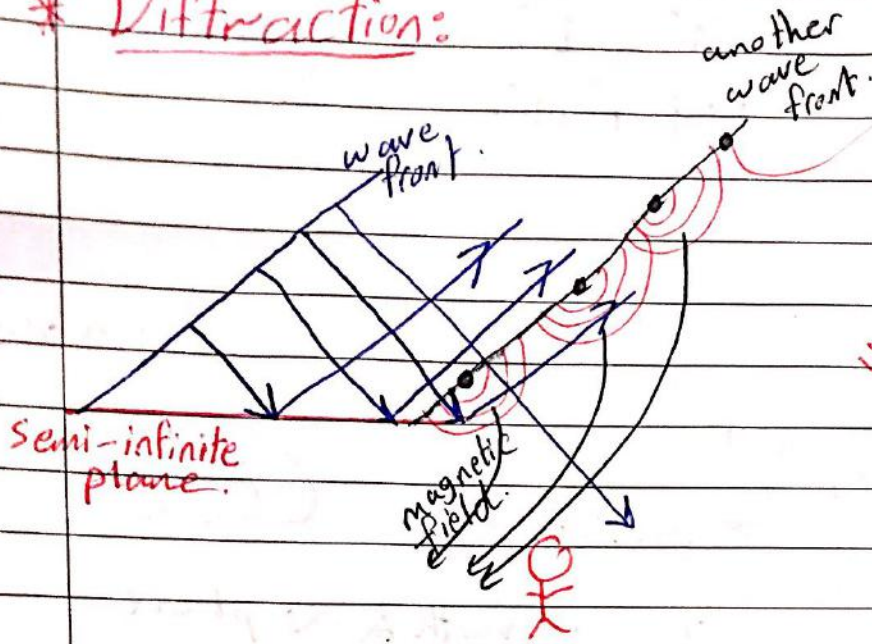 * Diffraction:
another
wave
front.
wave
front.
semi-infinite
plane.
magnetic
field.